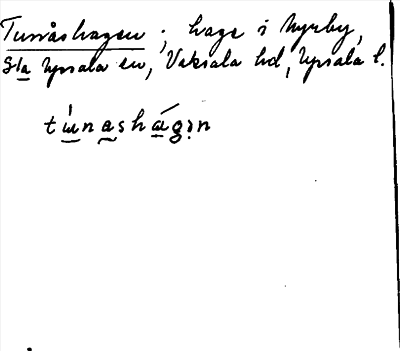 Tunåshagen ; hage i Nyrby,
Gla Upsala sn, Vaksala hd, Upsala l.
tu̲nash́a̲gin